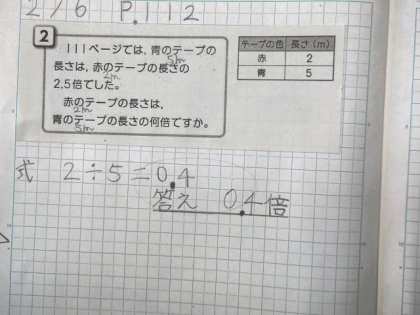 2/6 P.112
2
111ページでは、青のテープの
5m
長さは、赤のテープの長さの
2m
2.5倍でした。
赤のテープの長さは、
2m
青のテープの長さの何倍ですか。
5m
テープの色 長さ(m)
赤 2
青 5
式 2÷5=0.4
答え 0.4倍